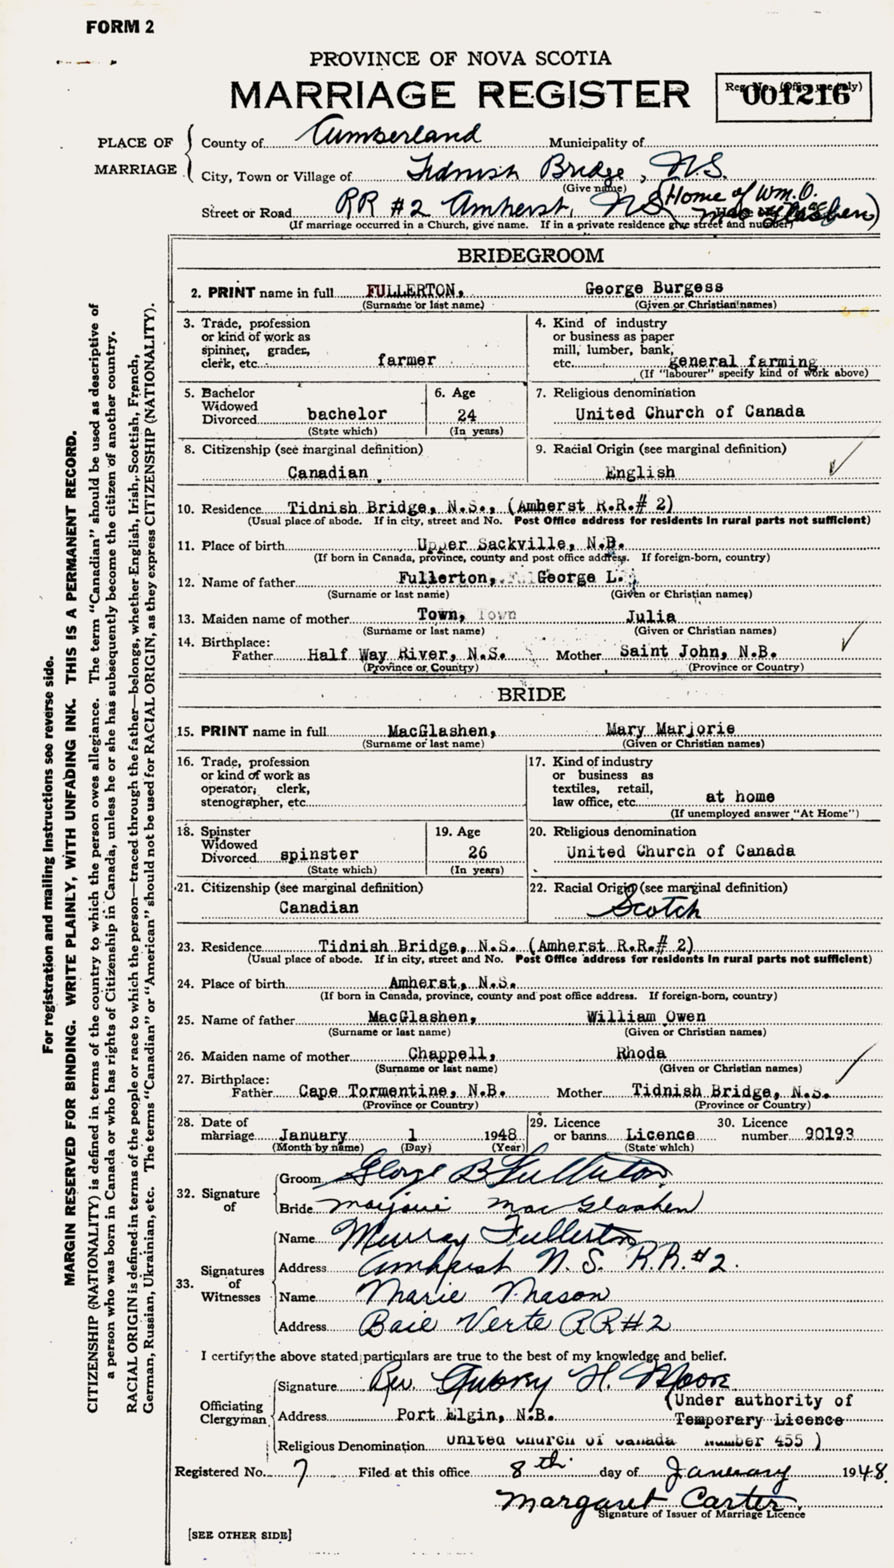 FORM 2
PROVINCE OF NOVA SCOTIA
MARRIAGE REGISTER
Reg. No. (Office use only)
001216
PLACE OF MARRIAGE
County of Cumberland Municipality of
City, Town or Village of Tidnish Bridge, N.S.
(Give name)
Street or Road RR #2 Amherst, NS (Home of Wm. O. MacGlashen)
(If marriage occurred in a Church, give name. If in a private residence give street and number)
BRIDEGROOM
2. PRINT name in full FULLERTON, George Burgess
(Surname or last name) (Given or Christian names)
3. Trade, profession or kind of work as spinner, grader, clerk, etc. farmer
4. Kind of industry or business as paper mill, lumber, bank, etc. general farming
(If "labourer" specify kind of work above)
5. Bachelor Widowed Divorced bachelor
(State which)
6. Age 24
(In years)
7. Religious denomination
United Church of Canada
8. Citizenship (see marginal definition)
Canadian
9. Racial Origin (see marginal definition)
English
10. Residence Tidnish Bridge, N.S., (Amherst R.R.# 2)
(Usual place of abode. If in city, street and No. Post Office address for residents in rural parts not sufficient)
11. Place of birth Upper Sackville, N.B.
(If born in Canada, province, county and post office address. If foreign-born, country)
12. Name of father Fullerton, George L.
(Surname or last name) (Given or Christian names)
13. Maiden name of mother Town, Town Julia
(Surname or last name) (Given or Christian names)
14. Birthplace:
Father Half Way River, N.S. Mother Saint John, N.B.
(Province or Country) (Province or Country)
BRIDE
15. PRINT name in full MacGlashen, Mary Marjorie
(Surname or last name) (Given or Christian names)
16. Trade, profession or kind of work as operator, clerk, stenographer, etc.
17. Kind of industry or business as textiles, retail, law office, etc. at home
(If unemployed answer "At Home")
18. Spinster Widowed Divorced spinster
(State which)
19. Age 26
(In years)
20. Religious denomination
United Church of Canada
21. Citizenship (see marginal definition)
Canadian
22. Racial Origin (see marginal definition)
Scotch
23. Residence Tidnish Bridge, N.S. (Amherst R.R.# 2)
(Usual place of abode. If in city, street and No. Post Office address for residents in rural parts not sufficient)
24. Place of birth Amherst, N.S.
(If born in Canada, province, county and post office address. If foreign-born, country)
25. Name of father MacGlashen, William Owen
(Surname or last name) (Given or Christian names)
26. Maiden name of mother Chappell, Rhoda
(Surname or last name) (Given or Christian names)
27. Birthplace:
Father Cape Tormentine, N.B. Mother Tidnish Bridge, N.S.
(Province or Country) (Province or Country)
28. Date of marriage January 1 1948
(Month by name) (Day) (Year)
29. Licence or banns Licence
(State which)
30. Licence number 90193
32. Signature of
Groom George B Fullerton
Bride Marjorie MacGlashen
33. Signatures of Witnesses
Name Murray Fullerton
Address Amherst N.S. R.R.#2.
Name Marie Mason
Address Baie Verte RR#2
I certify the above stated particulars are true to the best of my knowledge and belief.
Officiating Clergyman
Signature Rev. Aubrey H. Moore
Address Port Elgin, N.B. (Under authority of
Temporary Licence
Religious Denomination United Church of Canada Number 455 )
Registered No. 7 Filed at this office 8th day of January 1948.
Margaret Carter.
Signature of Issuer of Marriage Licence
[SEE OTHER SIDE]
For registration and mailing instructions see reverse side.
MARGIN RESERVED FOR BINDING. WRITE PLAINLY, WITH UNFADING INK. THIS IS A PERMANENT RECORD.
CITIZENSHIP (NATIONALITY) is defined in terms of the country to which the person owes allegiance. The term "Canadian" should be used as descriptive of
a person who was born in Canada or who has rights of Citizenship in Canada, unless he or she has subsequently become the citizen of another country.
RACIAL ORIGIN is defined in terms of the people or race to which the person—traced through the father—belongs, whether English, Irish, Scottish, French,
German, Russian, Ukrainian, etc. The terms "Canadian" or "American" should not be used for RACIAL ORIGIN, as they express CITIZENSHIP (NATIONALITY).